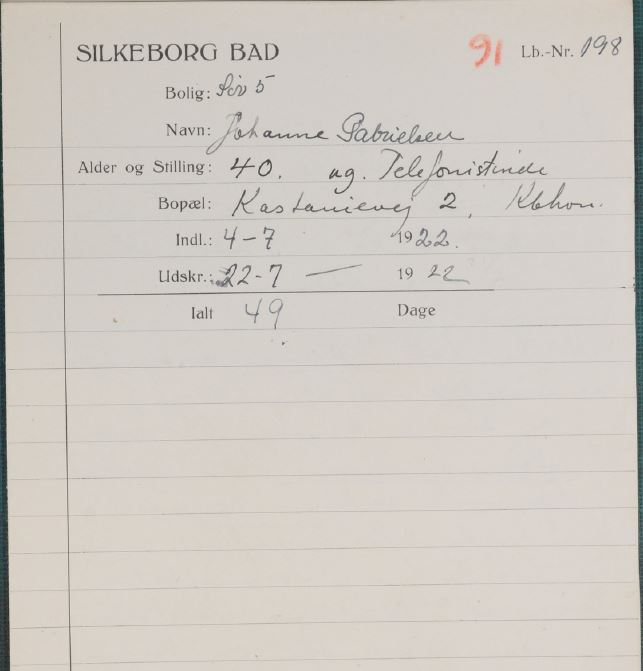 SILKEBORG BAD 91 Lb.-Nr. 198
Bolig: 5
Navn: Johanne Gabrielsen
Alder og Stilling: 40. ug. Telefonistinde
Bopæl: Kastanievej 2, Kbhvn.
Indl.: 4-7 1922.
Udskr.: 22-7 — 1922
Ialt 49 Dage